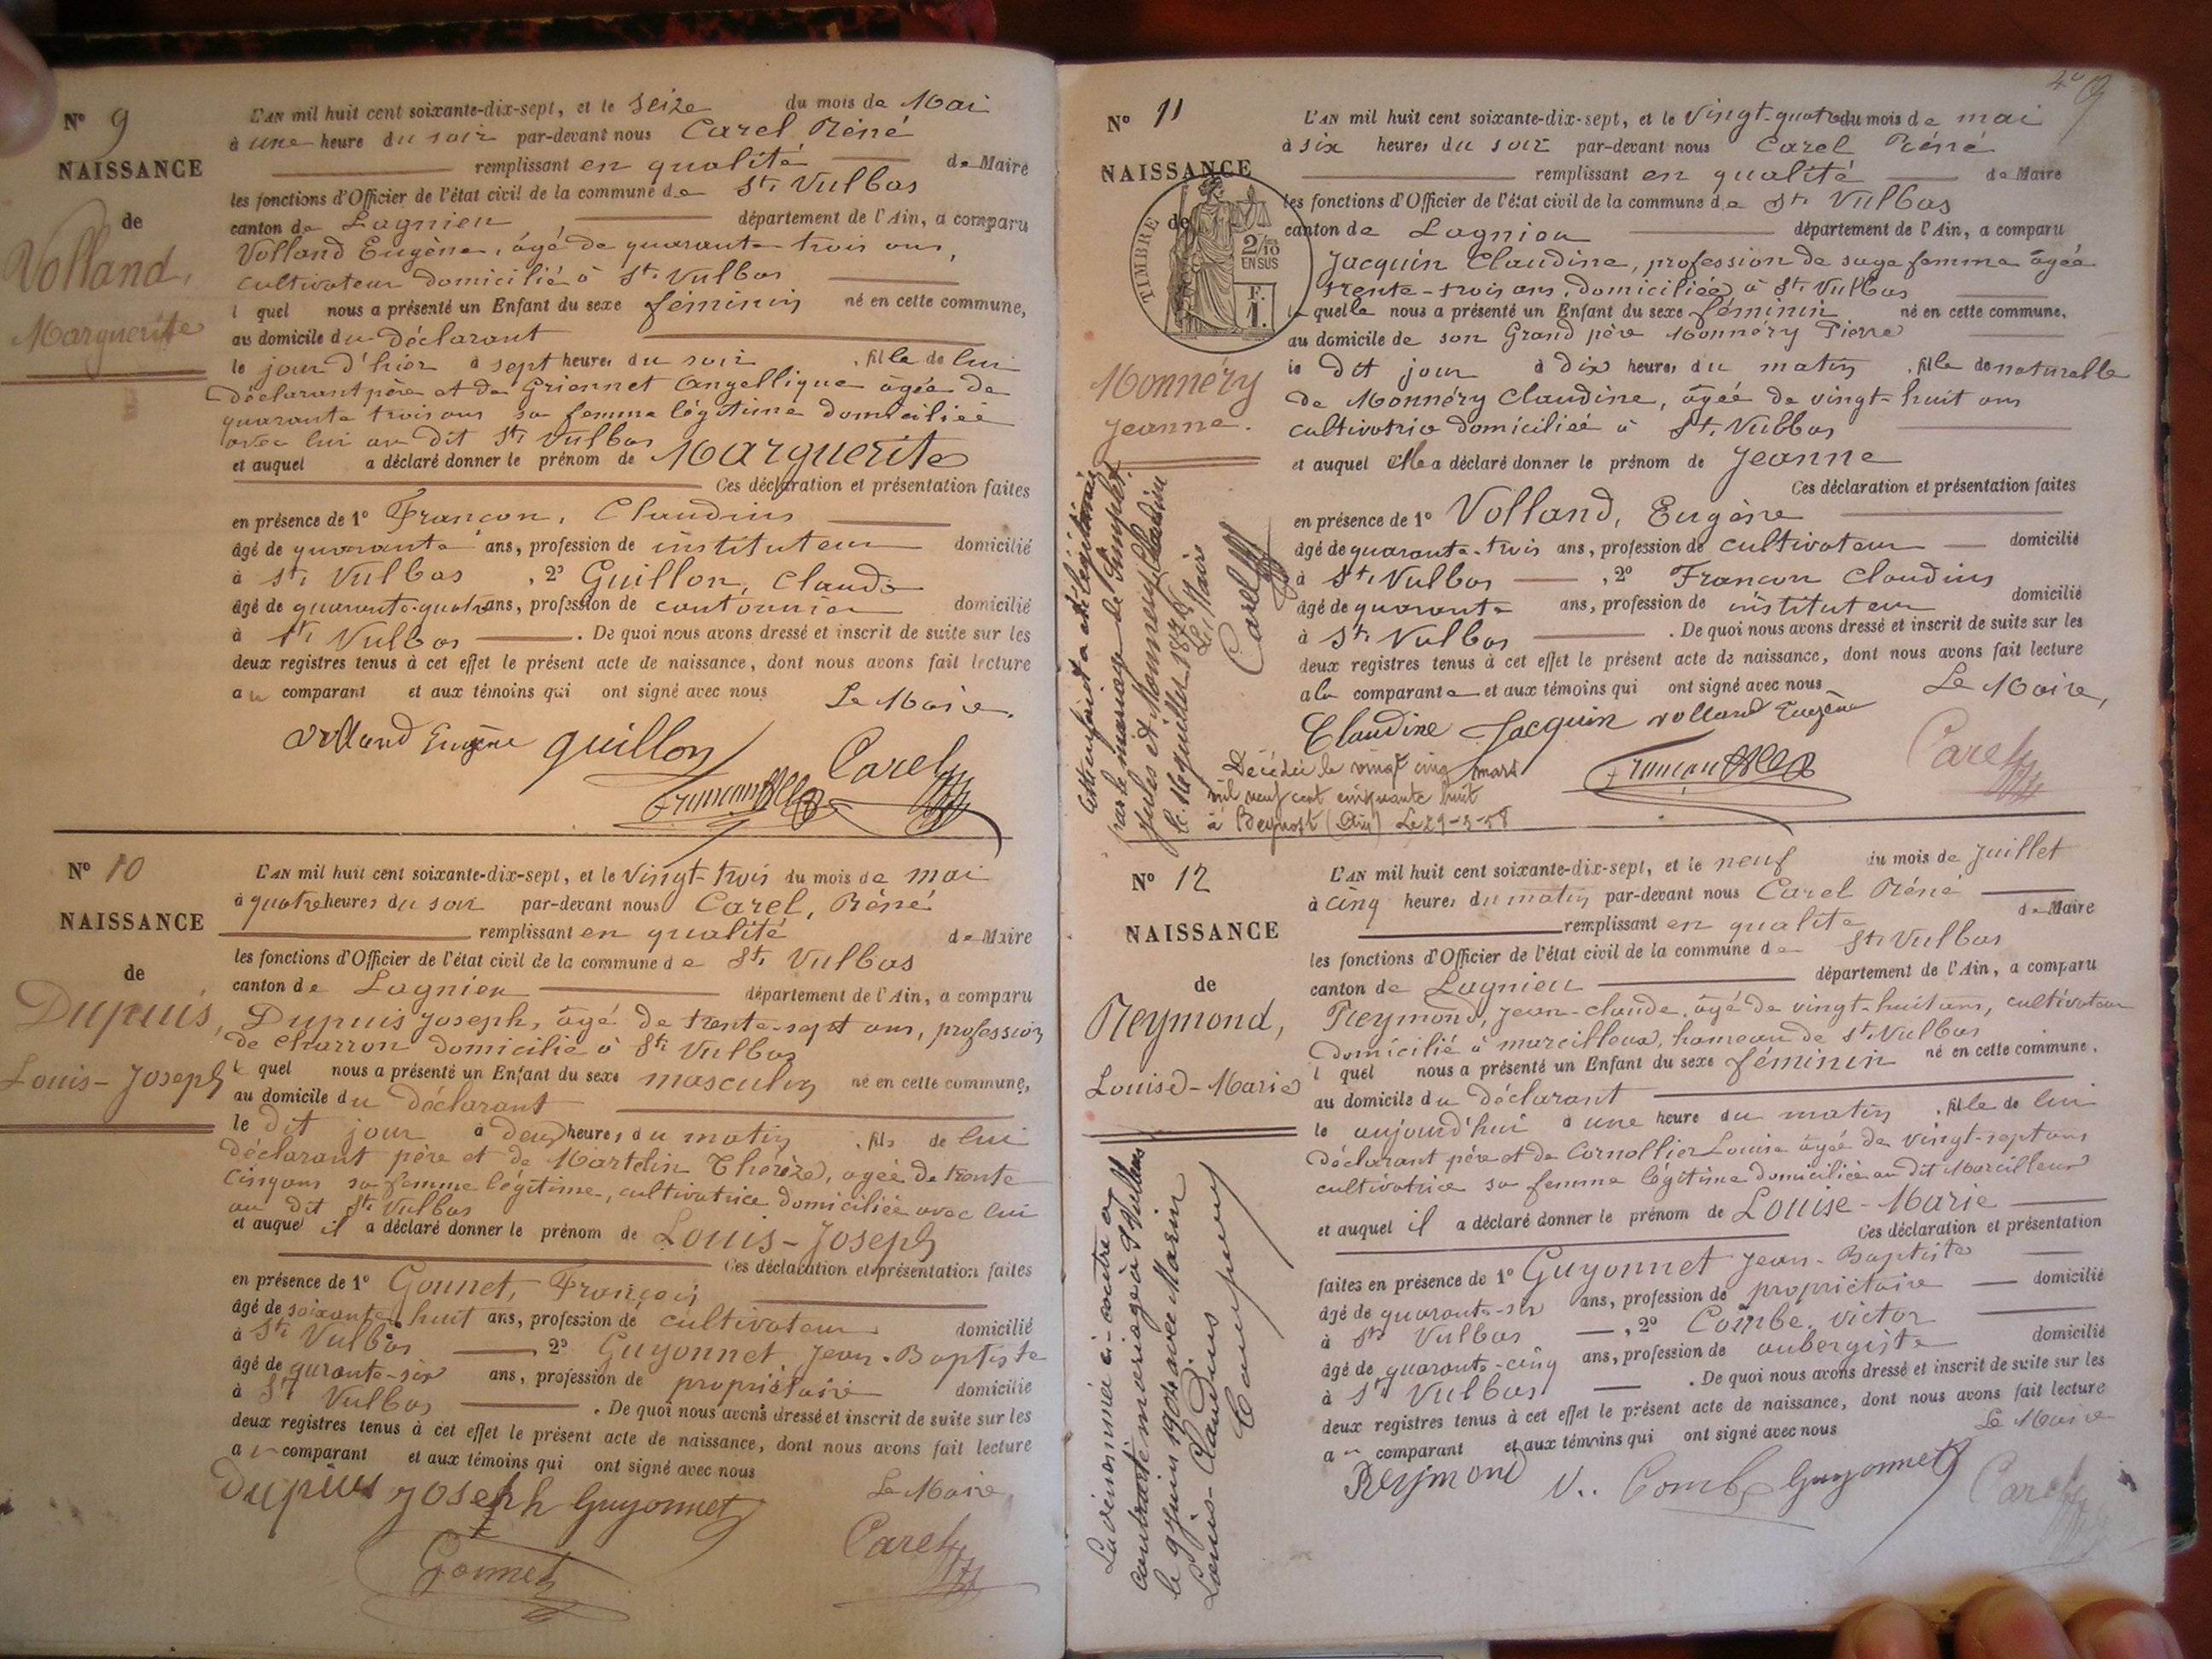 Nº 9
NAISSANCE
de
Volland,
Marguerite
L'AN mil huit cent soixante-dix-sept, et le seize du mois de Mai
à une heure du soir par-devant nous Carel Réné
remplissant en qualité de Maire
les fonctions d'Officier de l'état civil de la commune de St. Vulbas
canton de Lagnieu département de l'Ain, a comparu
Volland Eugène, âgé de quarante trois ans,
cultivateur domicilié à St. Vulbas
l quel nous a présenté un Enfant du sexe féminin né en cette commune,
au domicile du déclarant
le jour d'hier à sept heures du soir, fille de lui
déclarant père et de Griennet Angellique âgée de
quarante trois ans sa femme légitime domiciliée
avec lui au dit St. Vulbas
et auquel a déclaré donner le prénom de Marguerite
Ces déclaration et présentation faites
en présence de 1º Françon, Claudius
âgé de quarante ans, profession de instituteur domicilié
à St. Vulbas, 2º Guillon, Claude
âgé de quarante-quatre ans, profession de cantonnier domicilié
à St. Vulbas. De quoi nous avons dressé et inscrit de suite sur les
deux registres tenus à cet effet le présent acte de naissance, dont nous avons fait lecture
au comparant et aux témoins qui ont signé avec nous Le Maire,
Volland Eugène Guillon Carel
Françon
Nº 10
NAISSANCE
de
Dupuis,
Louis-Joseph
L'AN mil huit cent soixante-dix-sept, et le vingt-trois du mois de mai
à quatre heures du soir par-devant nous Carel, Réné
remplissant en qualité de Maire
les fonctions d'Officier de l'état civil de la commune de St. Vulbas
canton de Lagnieu département de l'Ain, a comparu
Dupuis Joseph, âgé de trente-sept ans, profession
de charron domicilié à St. Vulbas
l quel nous a présenté un Enfant du sexe masculin né en cette commune,
au domicile du déclarant
le dit jour à deux heures du matin, fils de lui
déclarant père et de Martelin Thérèze, agée de trente
cinq ans sa femme légitime, cultivatrice domiciliée avec lui
au dit St. Vulbas
et auquel il a déclaré donner le prénom de Louis-Joseph
Ces déclaration et présentation faites
en présence de 1º Gonnet, François
âgé de soixante huit ans, profession de cultivateur domicilié
à St. Vulbas 2º Guyonnet, Jean-Baptiste
âgé de qurante-six ans, profession de propriétaire domicilié
à St. Vulbas. De quoi nous avons dressé et inscrit de suite sur les
deux registres tenus à cet effet le présent acte de naissance, dont nous avons fait lecture
au comparant et aux témoins qui ont signé avec nous
Dupuis Joseph Guyonnet Le Maire,
Gonnet Carel
Nº 11
NAISSANCE
de
TIMBRE
2/10
EN SUS
F.
1.
Monnéry
Jeanne.
L'AN mil huit cent soixante-dix-sept, et le vingt-quatre du mois de mai
à six heures du soir par-devant nous Carel Réné
remplissant en qualité de Maire
les fonctions d'Officier de l'état civil de la commune de St. Vulbas
canton de Lagnieu département de l'Ain, a comparu
Jacquin Claudine, profession de sage femme âgée
trente-trois ans, domiciliée à St. Vulbas
la quelle nous a présenté un Enfant du sexe féminin né en cette commune,
au domicile de son Grand père Monnéry Pierre
le dit jour à dix heures du matin, fille de naturelle
de Monnéry Claudine, âgée de vingt-huit ans
cultivatrice domiciliée à St. Vulbas
et auquel elle a déclaré donner le prénom de Jeanne
Ces déclaration et présentation faites
en présence de 1º Volland, Eugène
âgé de quarante-trois ans, profession de cultivateur domicilié
à St. Vulbas, 2º Françon Claudius
âgé de quarante ans, profession de instituteur domicilié
à St. Vulbas. De quoi nous avons dressé et inscrit de suite sur les
deux registres tenus à cet effet le présent acte de naissance, dont nous avons fait lecture
a la comparante et aux témoins qui ont signé avec nous Le Maire,
Claudine Jacquin Volland Eugène
Françon Carel
Cet enfant a été légitimé
par le mariage de
Jules et Monnery Claudine
le 16 juillet 1878
Le Maire
Carel
Décédée le vingt cinq mars
mil neuf cent cinquante huit
à Beynost (Ain) Le 29-3-58
Nº 12
NAISSANCE
de
Reymond,
Louise-Marie
L'AN mil huit cent soixante-dix-sept, et le neuf du mois de Juillet
à cinq heures du matin par-devant nous Carel Réné
remplissant en qualité de Maire
les fonctions d'Officier de l'état civil de la commune de St. Vulbas
canton de Lagnieu département de l'Ain, a comparu
Reymond, Jean-Claude, âgé de vingt-huit ans, cultivateur
domicilié à marcilleux, hameau de St. Vulbas
l quel nous a présenté un Enfant du sexe féminin né en cette commune,
au domicile du déclarant
le aujourd'hui à une heure du matin, fille de lui
déclarant père et de Cornollier Louise âgée de vingt-sept ans
cultivatrice sa femme légitime domiciliée au dit Marcilleux
et auquel il a déclaré donner le prénom de Louise-Marie
Ces déclaration et présentation
faites en présence de 1º Guyonnet Jean-Baptiste
âgé de quarante-six ans, profession de propriétaire domicilié
à St. Vulbas, 2º Combe, Victor
âgé de quarante-cinq ans, profession de aubergiste domicilié
à St. Vulbas. De quoi nous avons dressé et inscrit de suite sur les
deux registres tenus à cet effet le présent acte de naissance, dont nous avons fait lecture
au comparant et aux témoins qui ont signé avec nous Le Maire
Reymond V. Combe Guyonnet Carel
La dénommée ci-contre a
contracté mariage à St Vulbas
le 9 juin 1904 avec Marin
Louis-Claudius